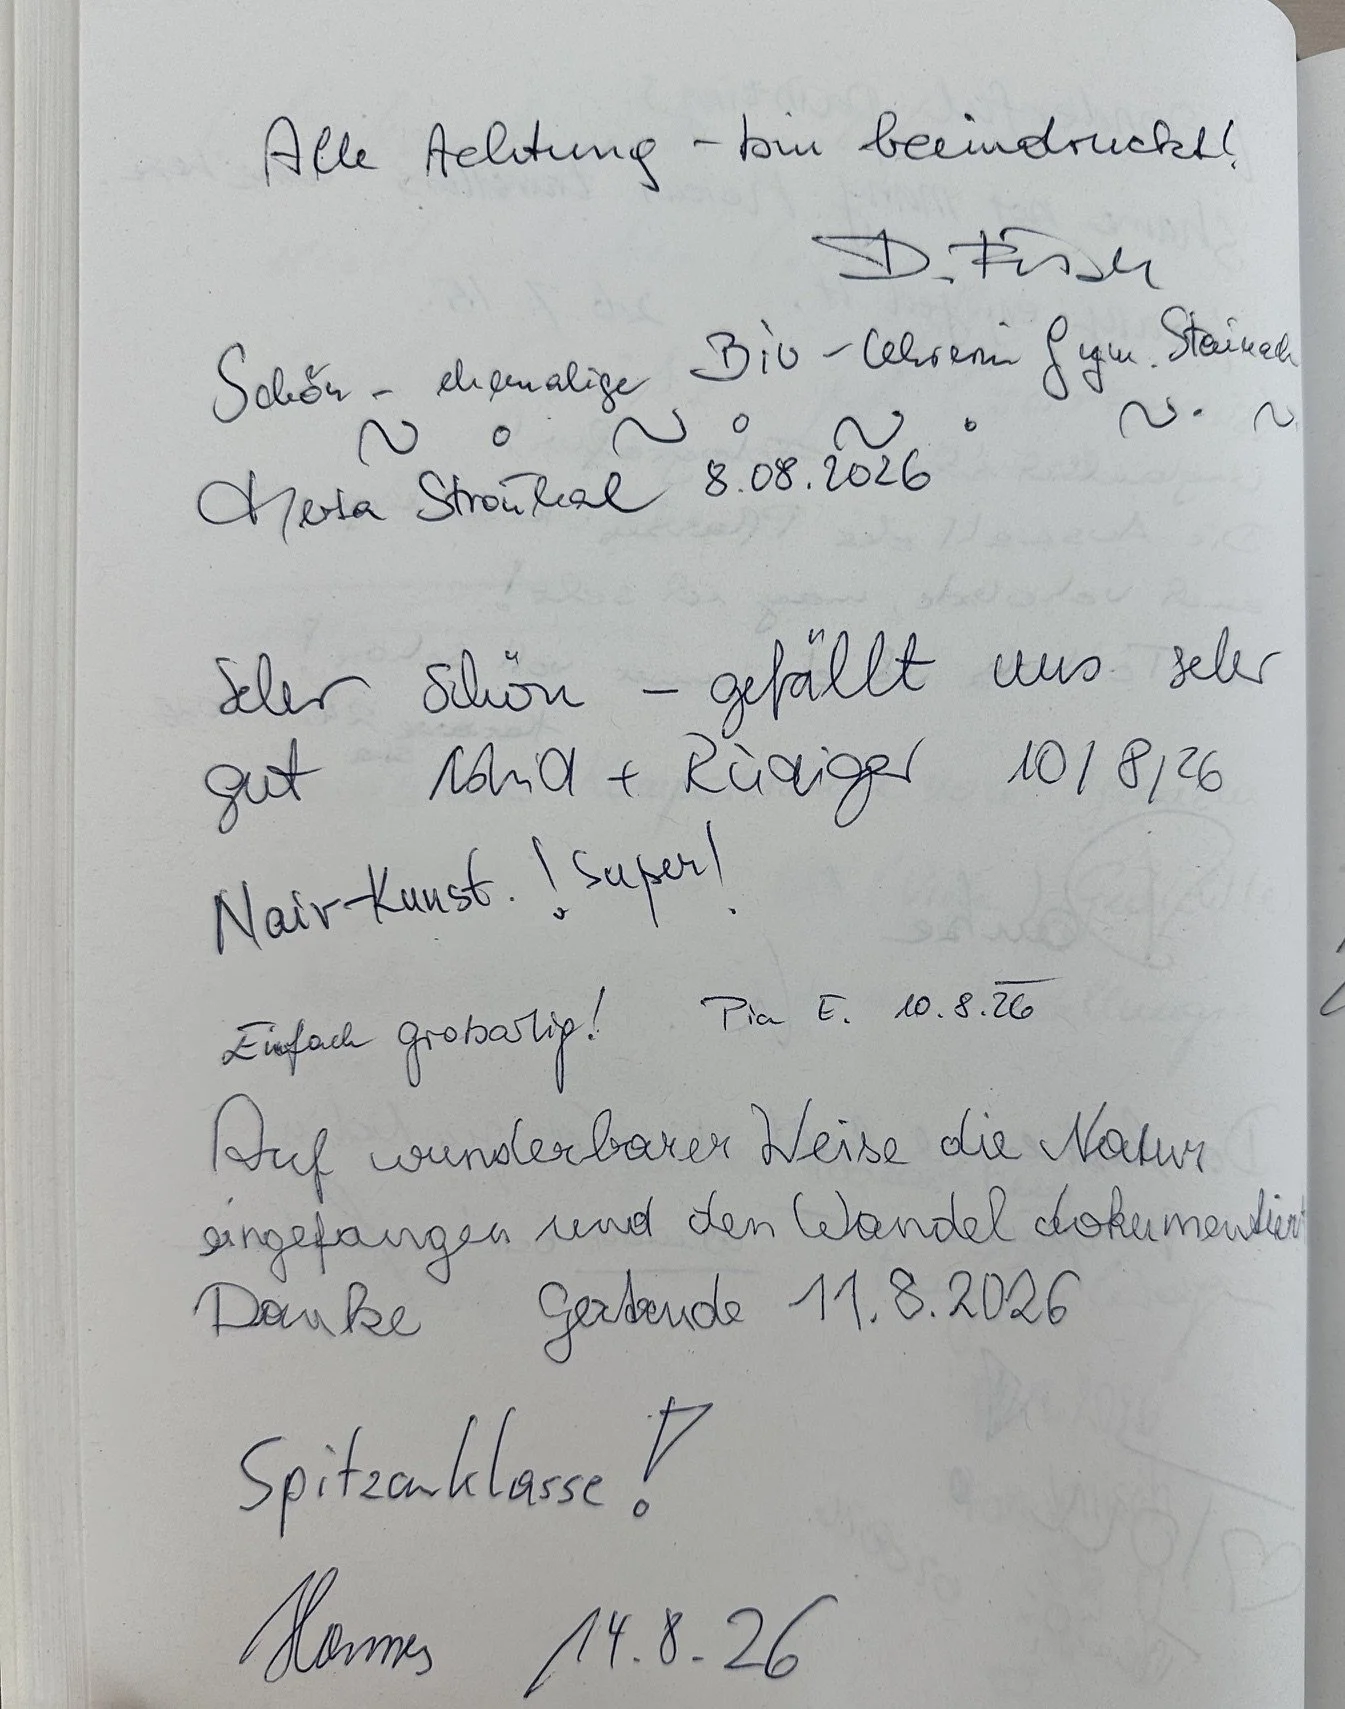 Alle Achtung - bin beeindruckt!
D. Fisch
Schön - ehemalige Bio-Lehrerin Gym. Stainach
Strouhal 8.08.2026
Sehr schön - gefällt uns sehr
gut + Rüdiger 10/8/26
Naiv-Kunst. ! Super!
Einfach großartig! Pia E. 10.8.26
Auf wunderbarer Weise die Natur
eingefangen und den Wandel dokumentiert
Danke 11.8.2026
Spitzenklasse!
Hannes 14.8.26